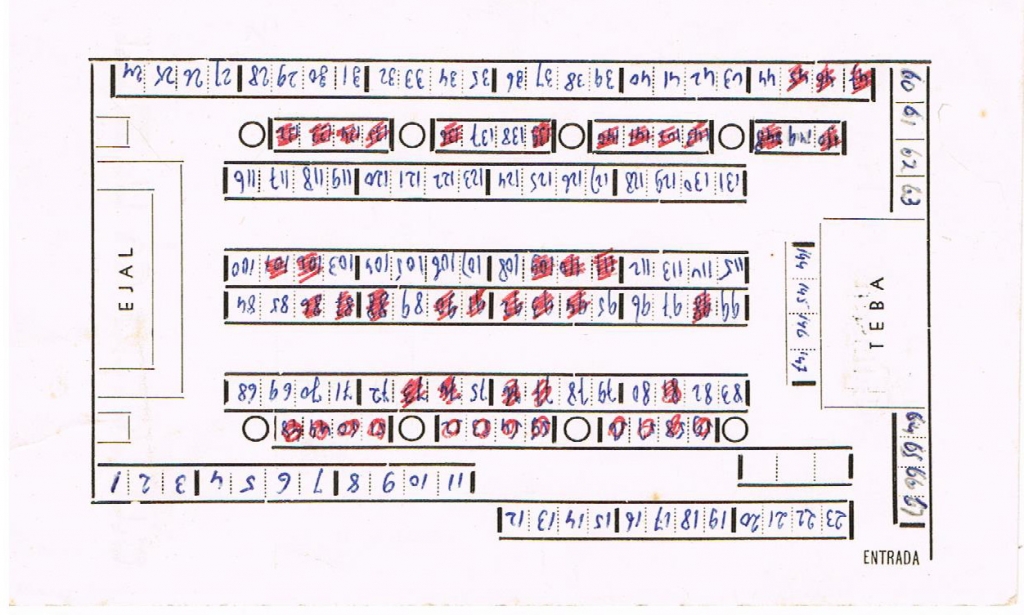 24 25 26 27 28 29 30 31 32 33 34 35 36 37 38 39 40 41 42 43 44 45 46 47
60
61
62
63
132 133 134 135 136 137 138 139 140 141 142 143 148 149 150
116 117 118 119 120 121 122 123 124 125 126 127 128 129 130 131
EJAL
100 101 102 103 104 105 106 107 108 109 110 111 112 113 114 115
84 85 86 87 88 89 90 91 92 93 94 95 96 97 98 99
144
145
146
147
TEBA
68 69 70 71 72 73 74 75 76 77 78 79 80 81 82 83
48 49 50 51 52 53 54 55 56 57 58 59
64
65
66
67
1 2 3 4 5 6 7 8 9 10 11
12 13 14 15 16 17 18 19 20 21 22 23
ENTRADA